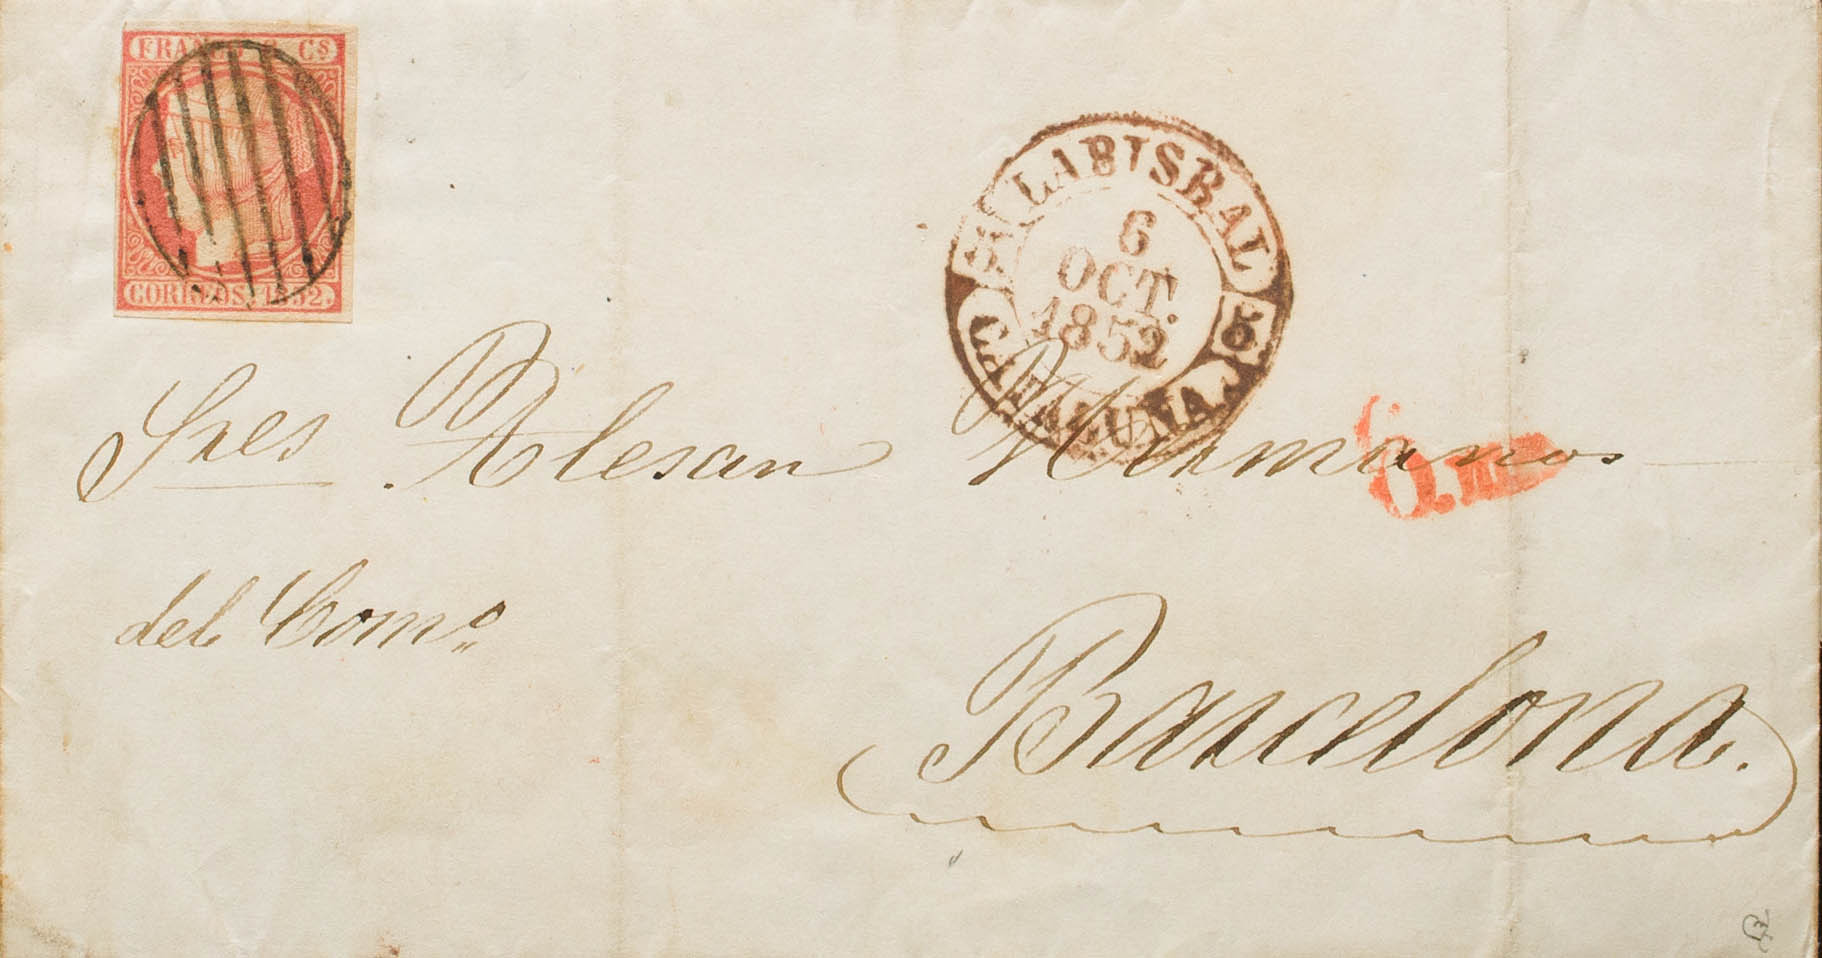 FRANCO 6 Cs
CORREOS. 1852.
LABISBAL
6
OCT.
1852
CATALUÑA
Sres Alesan Hermanos
del Como
Barcelona.